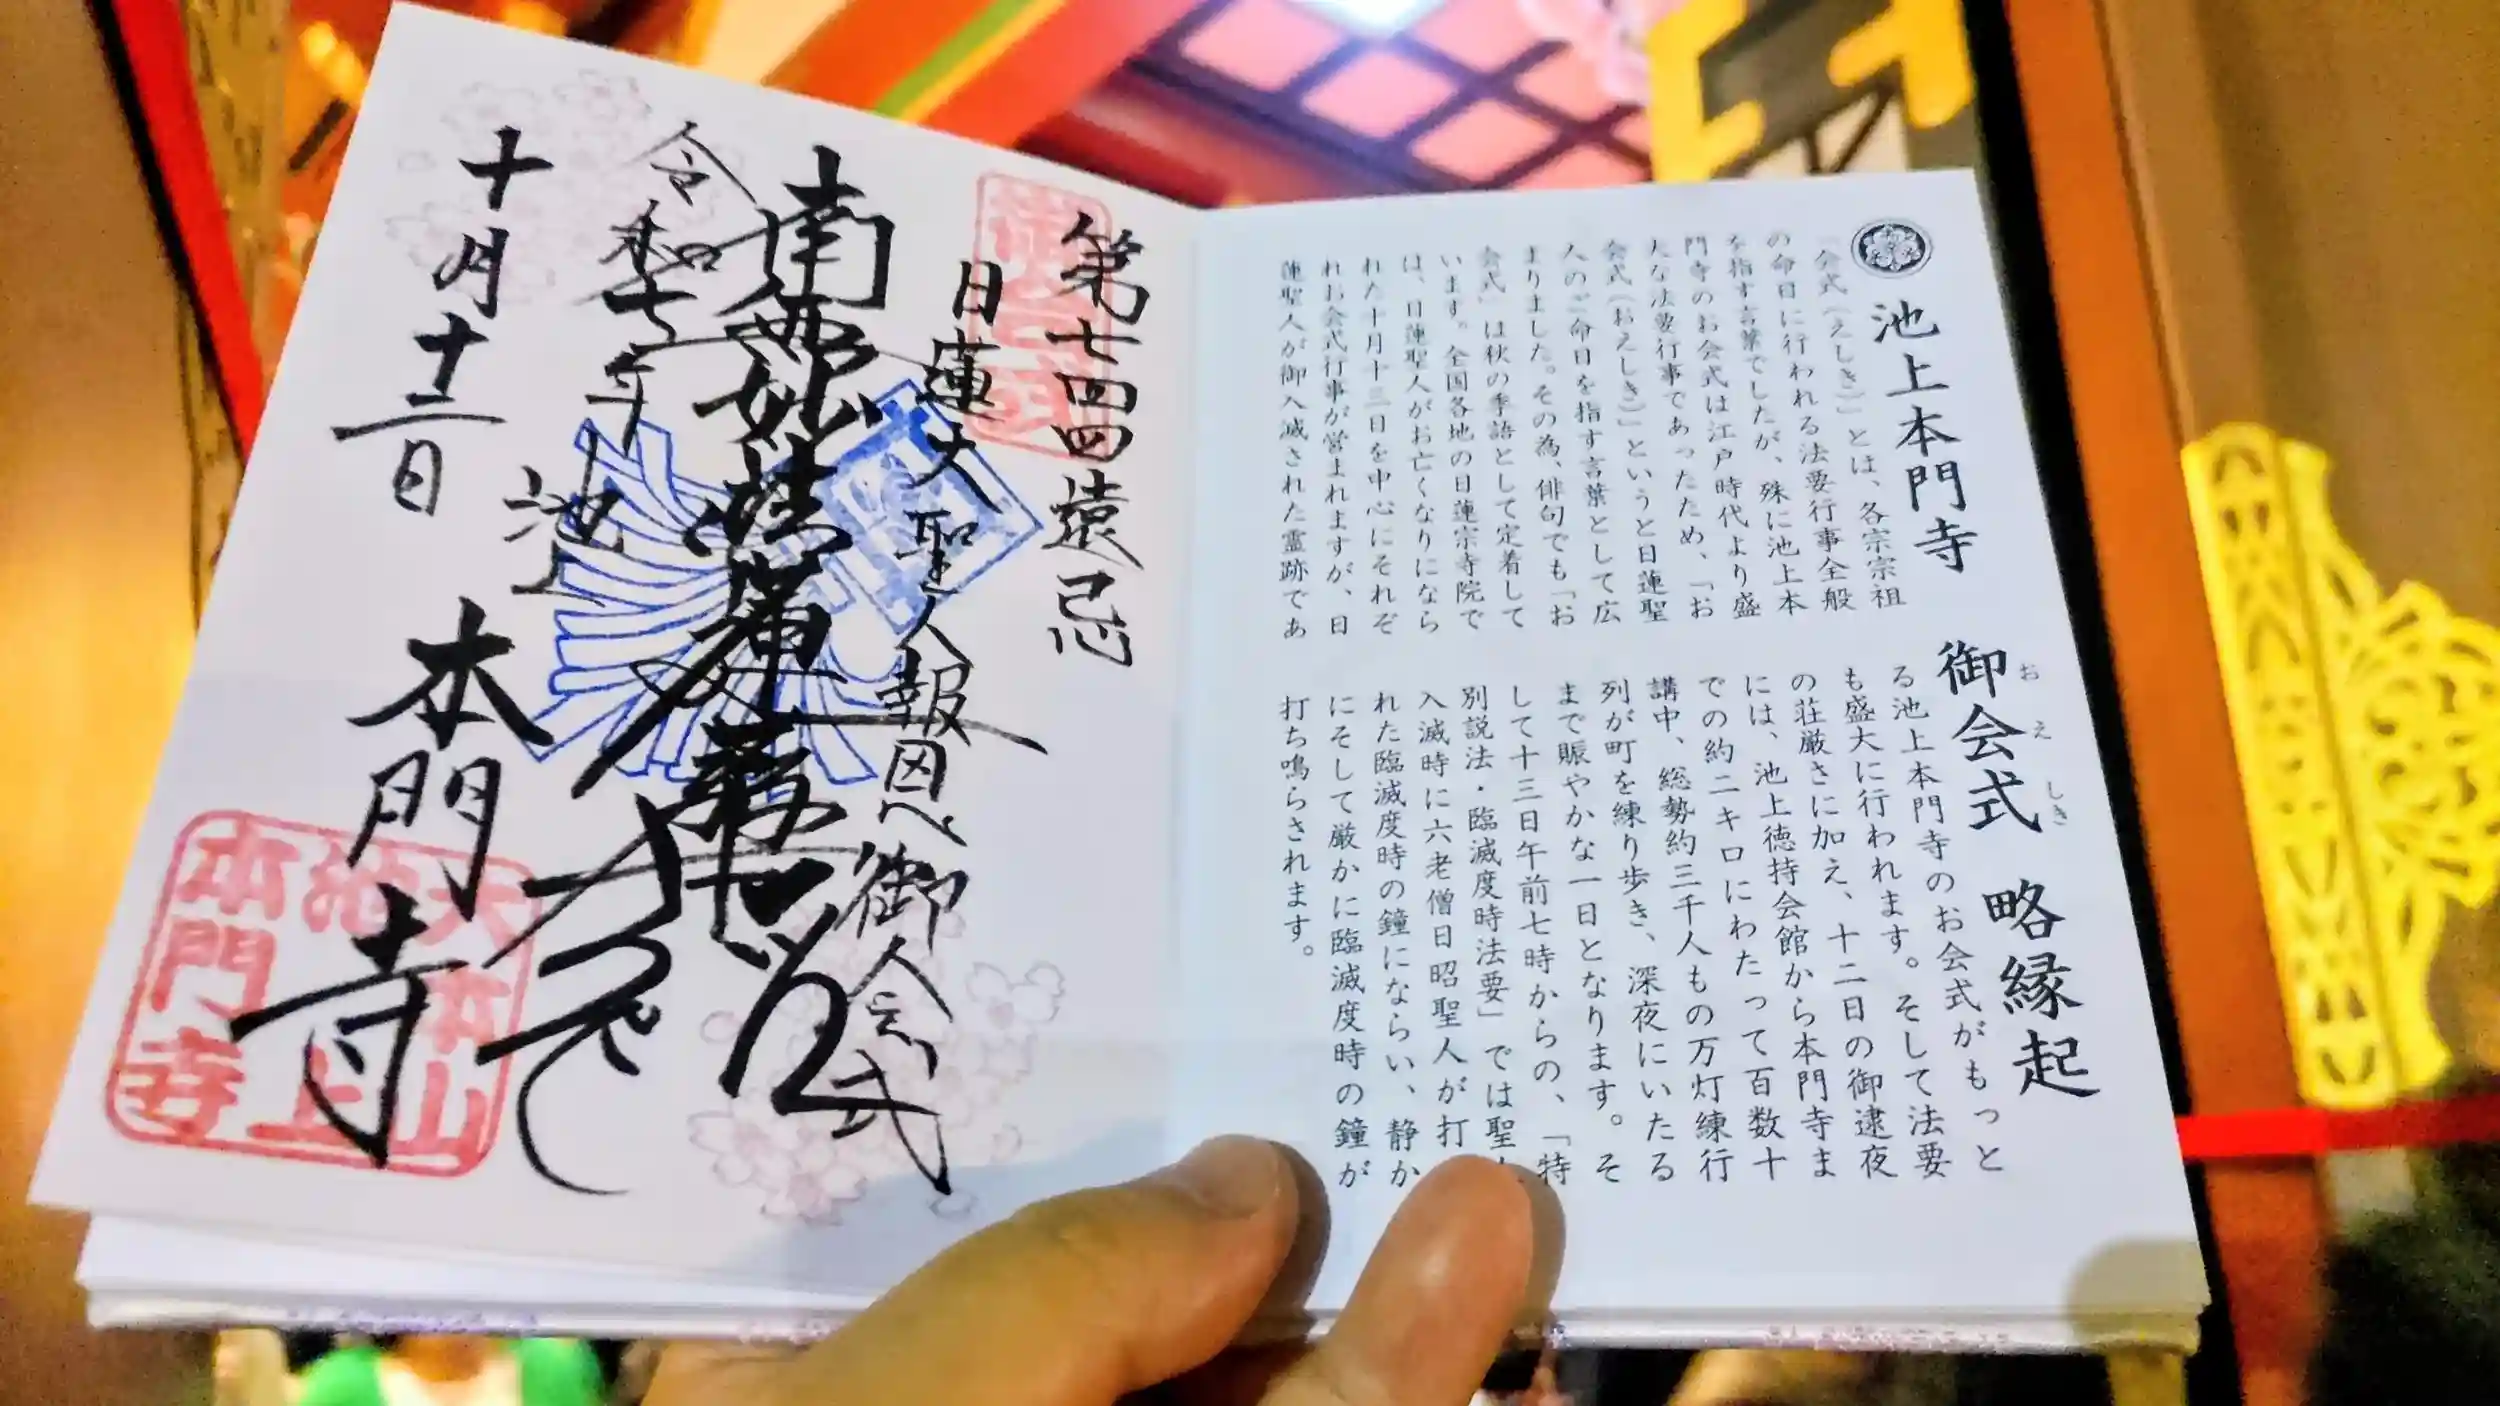 池上本門寺 御会式 略縁起
おえしき
「会式(えしき)」とは、各宗宗祖
の命日に行われる法要行事全般
を指す言葉でしたが、殊に池上本
門寺のお会式は江戸時代より盛
大な法要行事であったため、「お
会式(おえしき)」というと日蓮聖
人のご命日を指す言葉として広
まりました。その為、俳句でも「お
会式」は秋の季語として定着して
います。全国各地の日蓮宗寺院で
は、日蓮聖人がお亡くなりになら
れた十月十三日を中心にそれぞ
れお会式行事が営まれますが、日
蓮聖人が御入滅された霊跡であ
る池上本門寺のお会式がもっと
も盛大に行われます。そして法要
の荘厳さに加え、十二日の御逮夜
には、池上徳持会館から本門寺ま
での約二キロにわたって百数十
講中、総勢約三千人もの万灯練行
列が町を練り歩き、深夜にいたる
まで賑やかな一日となります。そ
して十三日午前七時からの、「特
別説法・臨滅度時法要」では聖人
入滅時に六老僧日昭聖人が打
れた臨滅度時の鐘にならい、静か
にそして厳かに臨滅度時の鐘が
打ち鳴らされます。
第七四四遠忌
日蓮大聖人報恩御会式
南無妙法蓮華経
令和七年
池上
本門寺
十月十二日
大本山
池上
本門寺